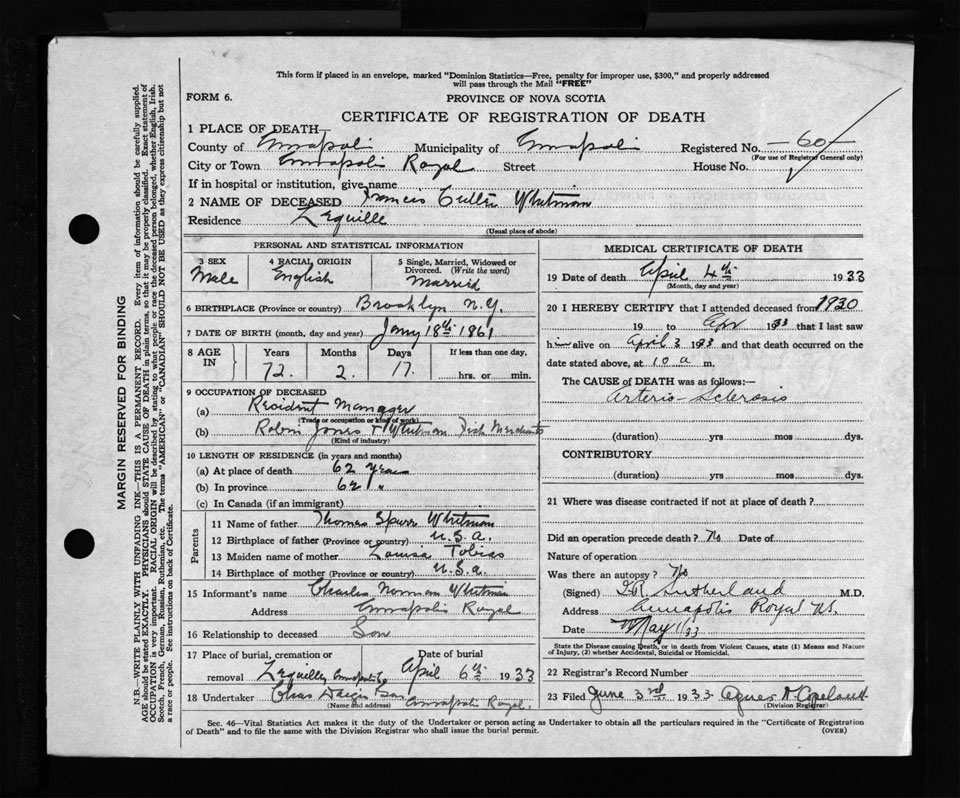 This form if placed in an envelope, marked "Dominion Statistics—Free, penalty for improper use, $300," and properly addressed
will pass through the Mail "FREE"
FORM 6.
PROVINCE OF NOVA SCOTIA
CERTIFICATE OF REGISTRATION OF DEATH
1 PLACE OF DEATH—
County of Annapolis Municipality of Annapolis Registered No. —60—
(For use of Registrar General only)
City or Town Annapolis Royal Street House No.
If in hospital or institution, give name
2 NAME OF DECEASED Francis Cutler Whitman
Residence Lequille
(Usual place of abode)
PERSONAL AND STATISTICAL INFORMATION
3 SEX 4 RACIAL ORIGIN 5 Single, Married, Widowed or
Divorced. (Write the word)
Male English Married
6 BIRTHPLACE (Province or country) Brooklyn N.Y.
7 DATE OF BIRTH (month, day and year) Jany 18th 1861
8 AGE IN Years Months Days If less than one day,
72. 2. 17. hrs. or min.
9 OCCUPATION OF DECEASED
(a) Resident Manager
(Trade or occupation or kind of work)
(b) Robin Jones & Whitman Fish Merchants
(Kind of industry)
10 LENGTH OF RESIDENCE (in years and months)
(a) At place of death 62 years
(b) In province 62 "
(c) In Canada (if an immigrant)
Parents
11 Name of father Thomas Spurr Whitman
12 Birthplace of father (Province or country) U.S.a.
13 Maiden name of mother Louisa Tobias
14 Birthplace of mother (Province or country) U.S.a.
15 Informant's name Charles Norman Whitman
Address Annapolis Royal
16 Relationship to deceased Son
17 Place of burial, cremation or Date of burial
removal Lequille April 6th 1933
18 Undertaker Chas
(Name and address) Annapolis Royal.
MEDICAL CERTIFICATE OF DEATH
19 Date of death April 4th 1933
(Month, day and year)
20 I HEREBY CERTIFY that I attended deceased from 1930
19 to Apr 1933 that I last saw
him alive on April 3 1933 and that death occurred on the
date stated above, at 10 a m.
The CAUSE OF DEATH was as follows:—
Arterio-Sclerosis
(duration) yrs mos dys.
CONTRIBUTORY
(duration) yrs mos dys.
21 Where was disease contracted if not at place of death?
Did an operation precede death? No Date of
Nature of operation
Was there an autopsy? No
(Signed) Sutherland M.D.
Address Annapolis Royal N.S.
Date May 1/33
State the Disease causing Death, or in death from Violent Causes, state (1) Means and Nature
of Injury, (2) whether Accidental, Suicidal or Homicidal.
22 Registrar's Record Number
23 Filed June 3rd 1933 Agnes Copeland
(Division Registrar)
Sec. 46—Vital Statistics Act makes it the duty of the Undertaker or person acting as Undertaker to obtain all the particulars required in the "Certificate of Registration
of Death" and to file the same with the Division Registrar who shall issue the burial permit. (OVER)
MARGIN RESERVED FOR BINDING
N.B.—WRITE PLAINLY WITH UNFADING INK—THIS IS A PERMANENT RECORD. Every item of information should be carefully supplied.
AGE should be stated EXACTLY. PHYSICIANS should STATE CAUSE OF DEATH in plain terms, so that it may be properly classified. Exact statement of
OCCUPATION is very important. RACIAL ORIGIN will be described by stating to what people or race the deceased person belonged, whether English, Irish,
Scotch, French, German, Russian, Ruthenian, etc. The terms "AMERICAN" or "CANADIAN" SHOULD NOT BE USED as they express citizenship but not
a race or people. See instructions on back of Certificate.